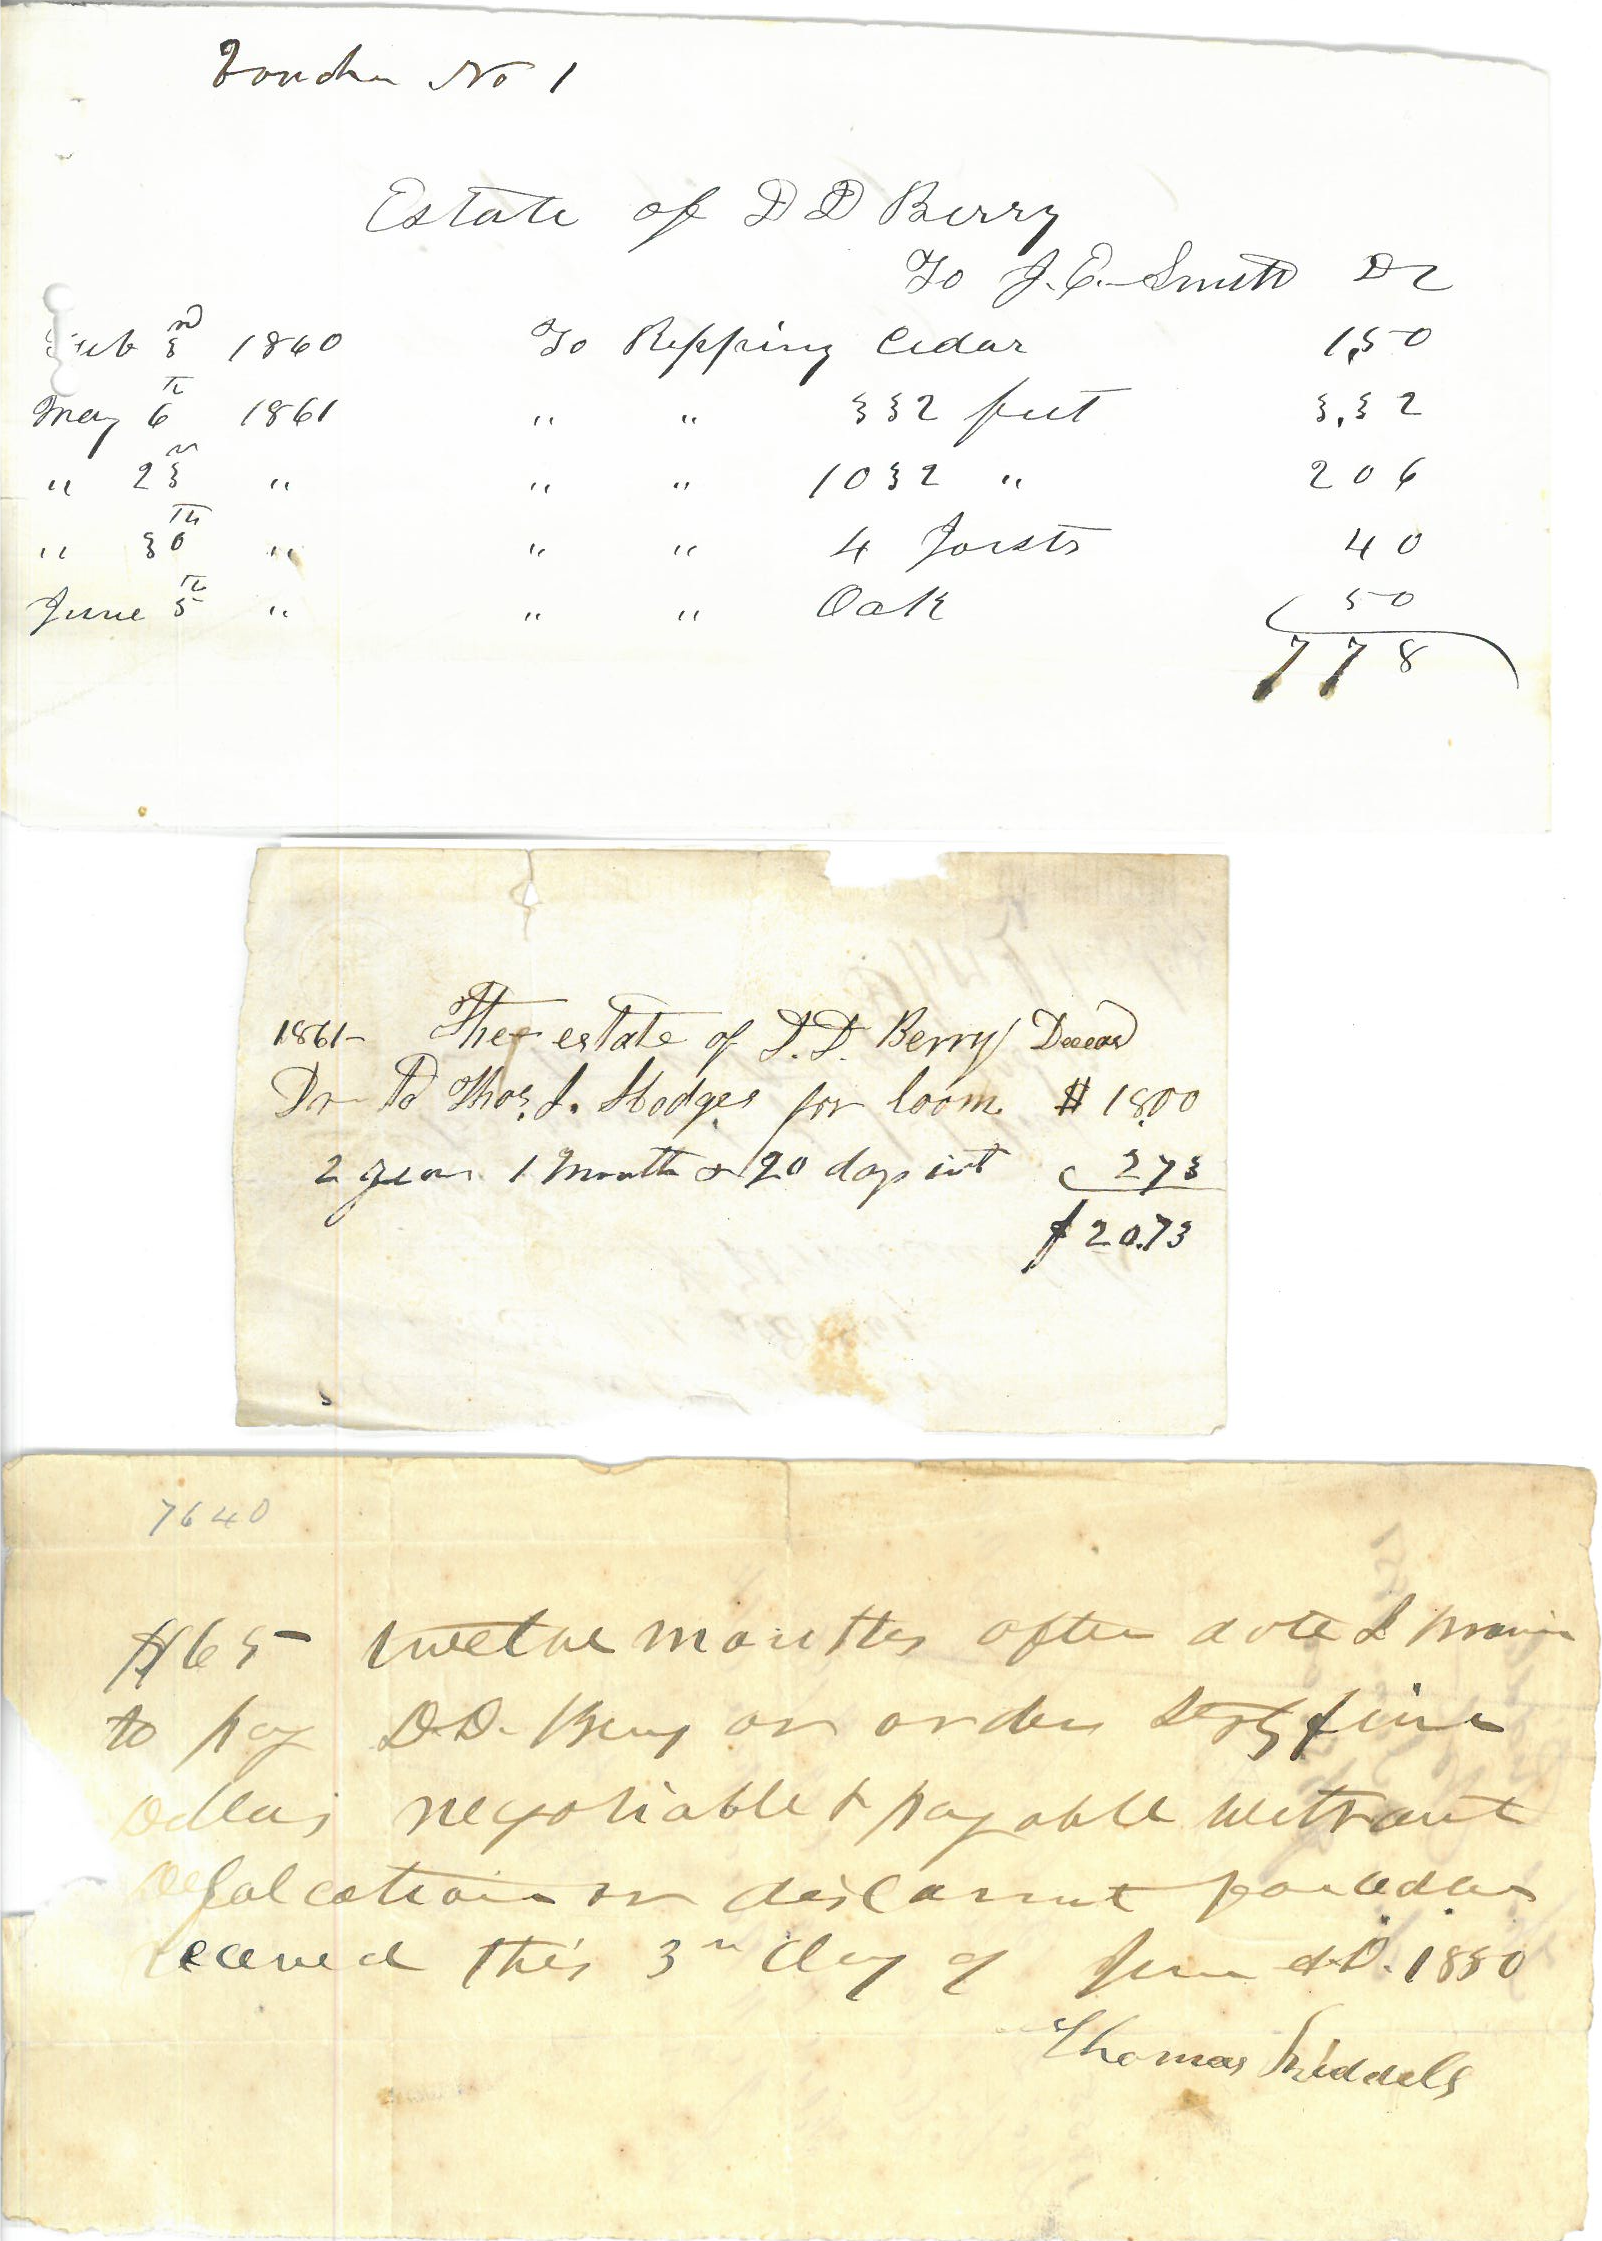 Voucher No 1
Estate of D D Berry
To J. E. Smith Dr
Feb 3rd 1860 To Repping Cedar 1,50
May 6th 1861 " " 332 feet 3,32
" 23rd " " " 1032 " 206
" 30th " " " 4 Joists 40
June 5th " " " Oak 50
778
1861- The estate of D. D. Berry Deceasd
Dr To Thos. J. Hodges for loom $ 18.00
2 years 1 Month & 20 days int 273
$ 20.73
7640
$65- twelve months after date I
to pay D.D. Berry or order Sixty five
Dollars negotiable & payable without
Defalcation or discount for
received this 3rd day of June A.D. 1850
Thomas